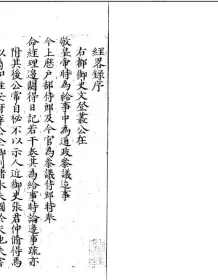 經略錄序
右都御史文登叢公在
敬皇帝時為給事中為通政參議迨事
今上歷戶部侍郎及今官為參議侍郎時奉
命經理邊關得日記若干卷其為給事時論邊事疏亦
附其後公常自祕不以示人近御史張君仲脩得焉